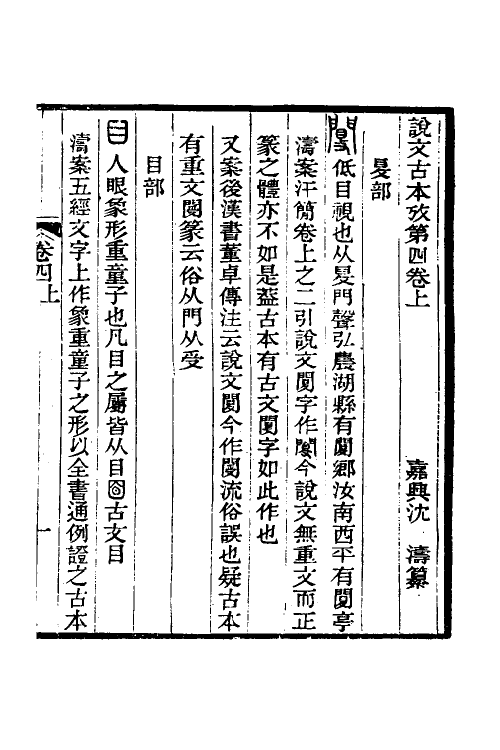 說文古本攷第四卷上
嘉興沈　濤纂
𥄎部
䦧低目視也从𥄎門聲弘農湖縣有䦧鄉汝南西平有䦧亭
濤案汗簡卷上之二引說文䦧字作今說文無重文而正
篆之體亦不如是葢古本有古文䦧字如此作也
又案後漢書董卓傳注云說文䦧今作閿流俗誤也疑古本
有重文閿篆云俗从門从受
目部
目人眼象形重童子也凡目之屬皆从目古文目
濤案五經文字上作象重童子之形以全書通例證之古本
卷四上
一